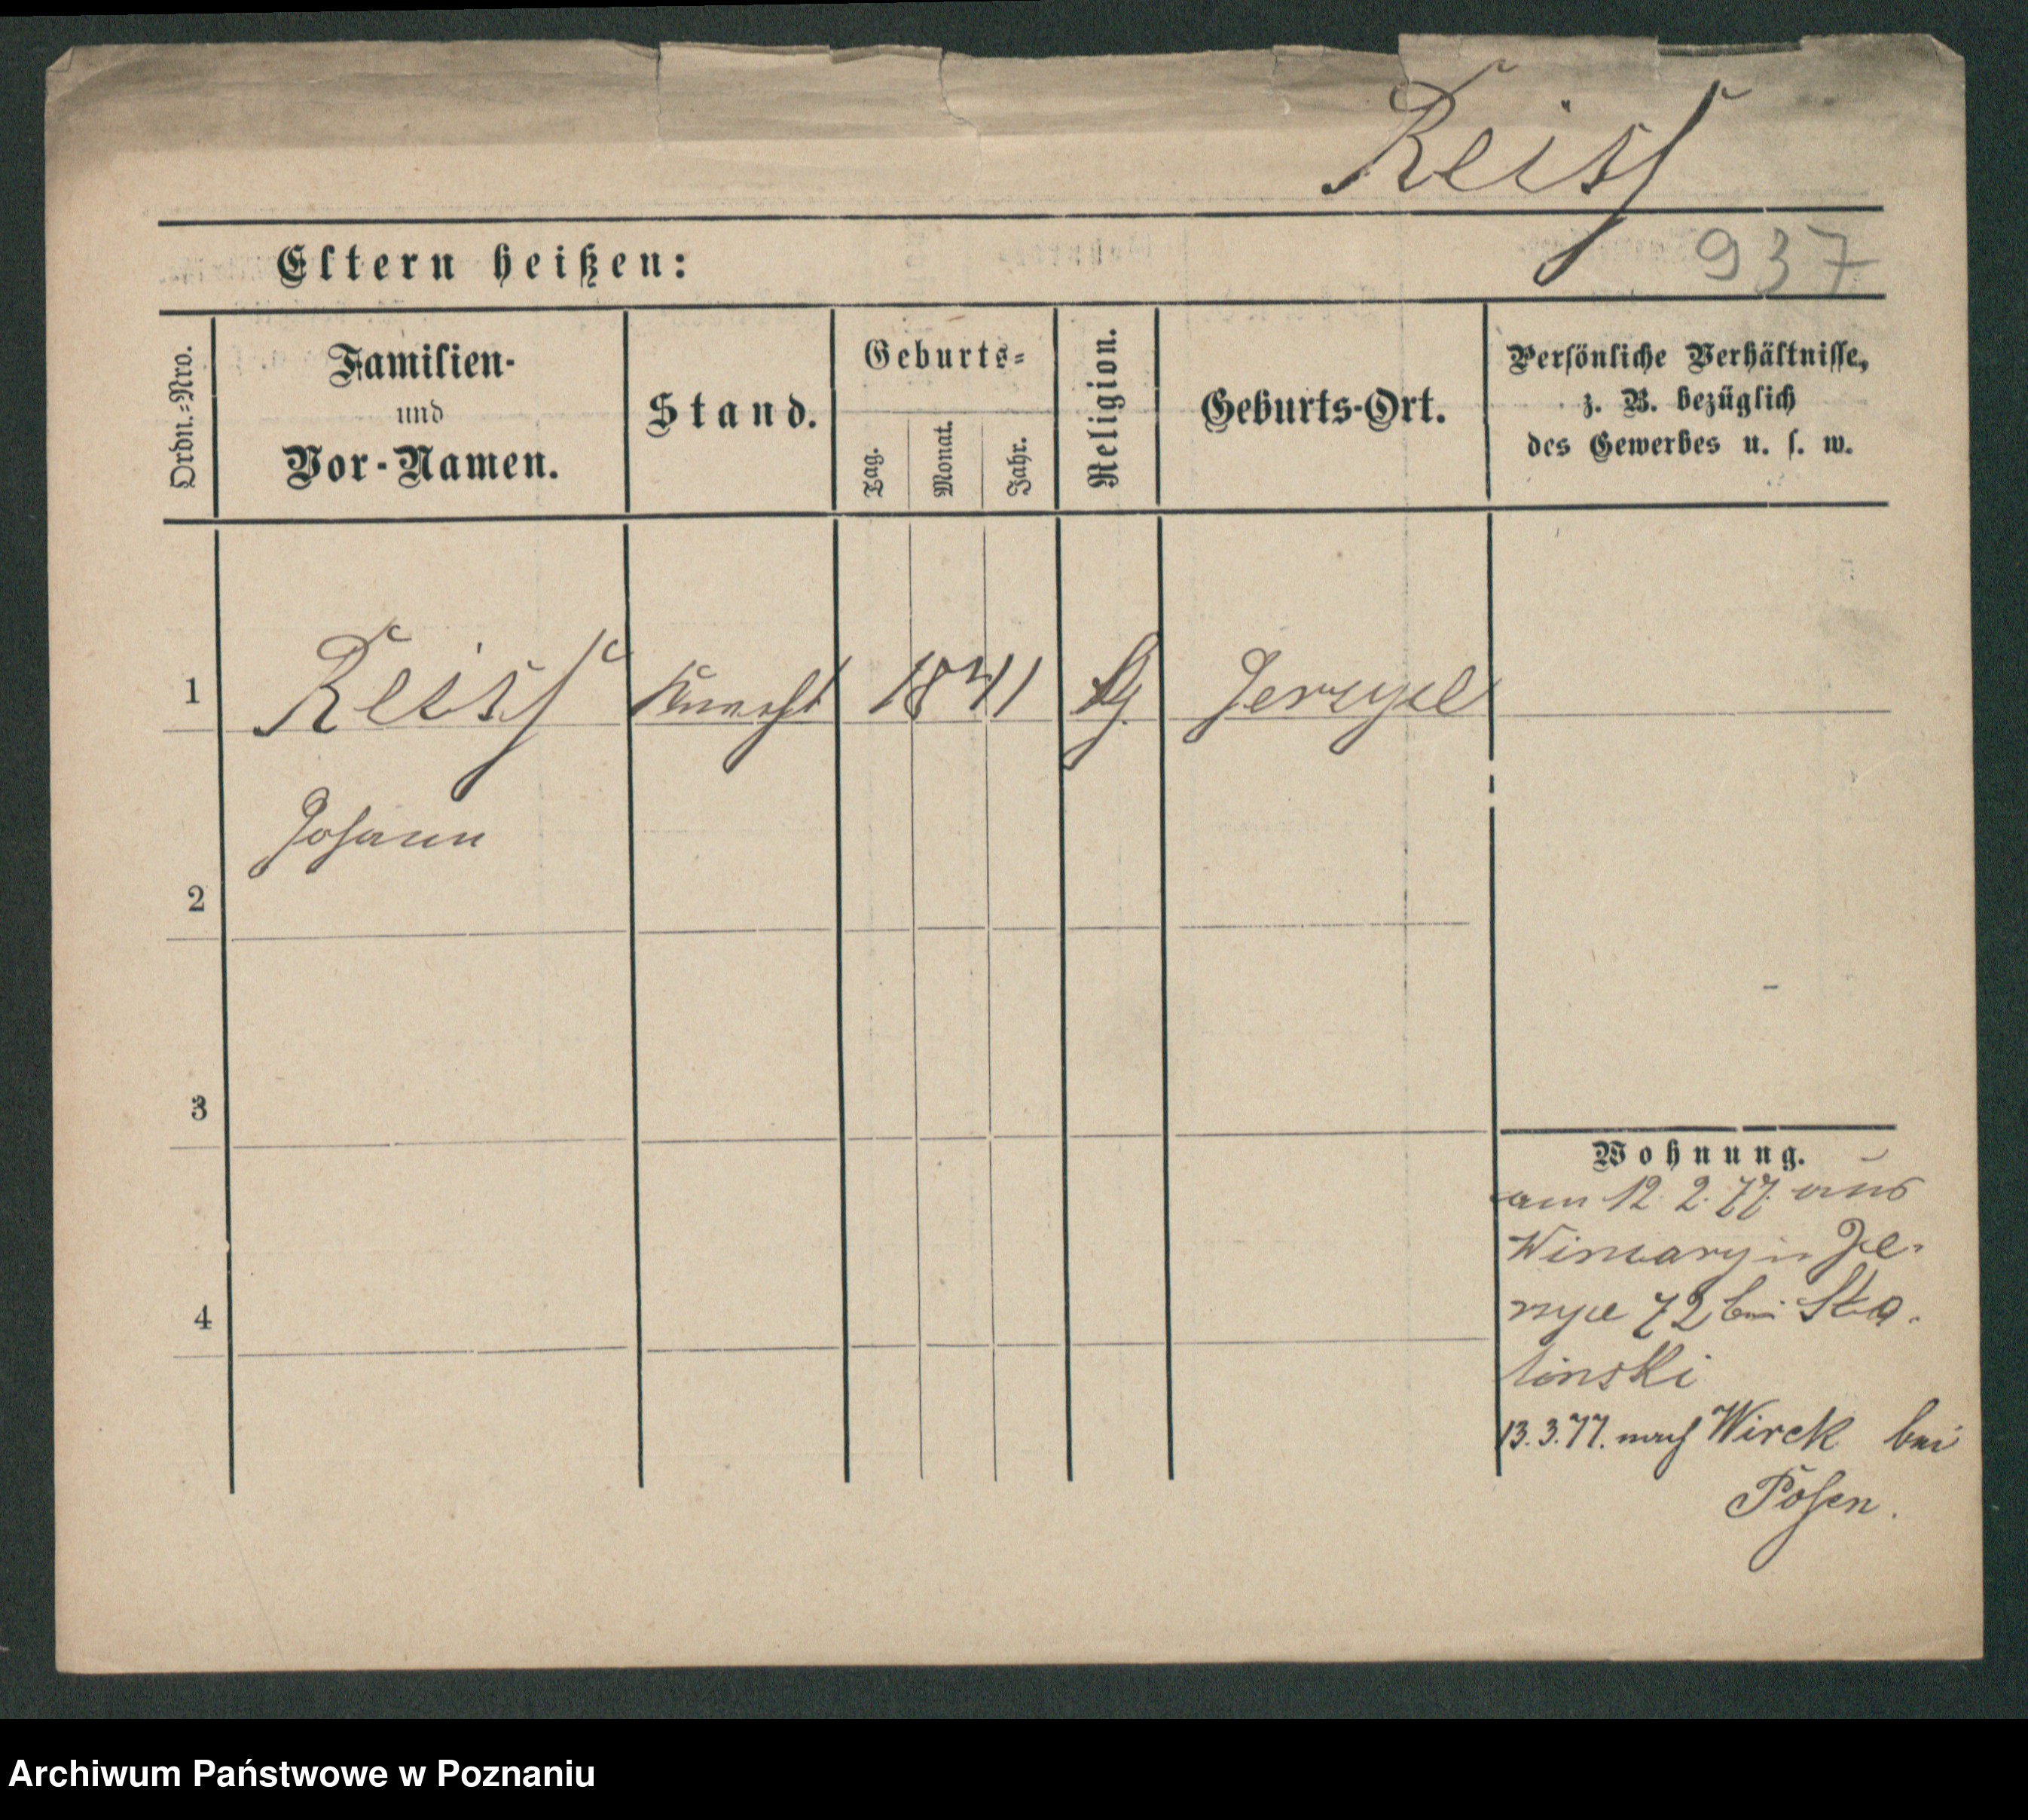 Reiss
Eltern heißen:
937
Ordn.=Nro.
Familien-
und
Vor-Namen.
Stand.
Geburts=
Tag.
Monat.
Jahr.
Religion.
Geburts-Ort.
Persönliche Verhältnisse,
z. B. bezüglich
des Gewerbes u. s. w.
1
Reiss
Knecht
1841
Jerzyce
Johann
2
3
4
Wohnung.
am 12. 2. 77. aus
Winiary in Je-
rzyce 72 bei Sta-
linski
13. 3. 77. nach Wirek bei
Posen.
Archiwum Państwowe w Poznaniu